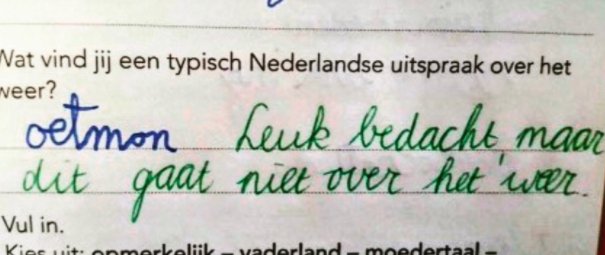 Wat vind jij een typisch Nederlandse uitspraak over het
weer?
oetmon Leuk bedacht, maar
dit gaat niet over het weer.
Vul in.
Kies uit: opmerkelijk – vaderland – moedertaal –